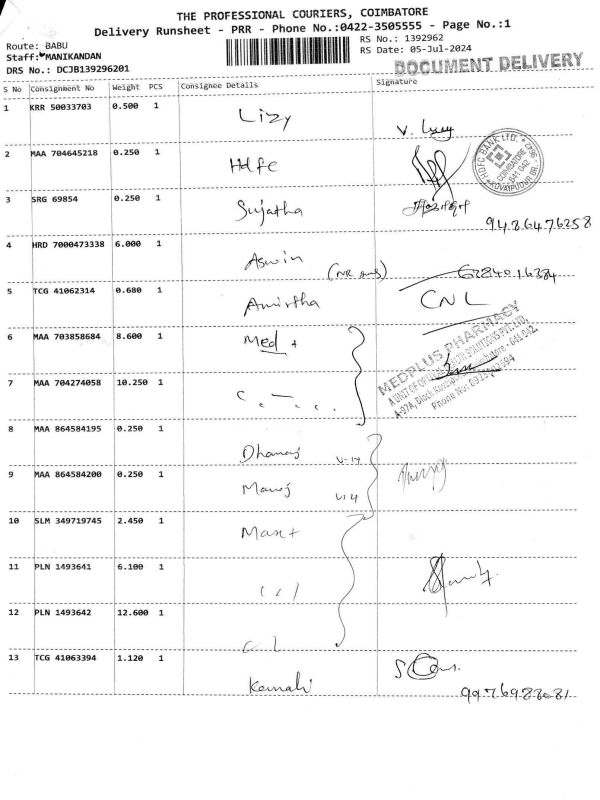 THE PROFESSIONAL COURIERS, COIMBATORE
Delivery Runsheet - PRR - Phone No.:0422-3505555 - Page No.:1
Route: BABU
RS No.: 1392962
Staff: MANIKANDAN
RS Date: 05-Jul-2024
DRS No.: DCJB139296201
DOCUMENT DELIVERY
S No Consignment No Weight PCS Consignee Details Signature
1 KRR 50033703 0.500 1
Lizy
V. Lizy
HDFC BANK LTD.
COIMBATORE
641 042
KOVAIPUDUR BR.
2 MAA 704645218 0.250 1
Hdfc
3 SRG 69854 0.250 1
Sujatha
9486476258
4 HRD 7000473338 6.000 1
Aswin
5 TCG 41062314 0.680 1
Amirtha
CNL
6 MAA 703858684 8.600 1
Med +
MEDPLUS PHARMACY
7 MAA 704274058 10.250 1
8 MAA 864584195 0.250 1
Dhanaj
9 MAA 864584200 0.250 1
Manoj
10 SLM 349719745 2.450 1
Max+
11 PLN 1493641 6.100 1
12 PLN 1493642 12.600 1
13 TCG 41063394 1.120 1
Kamali